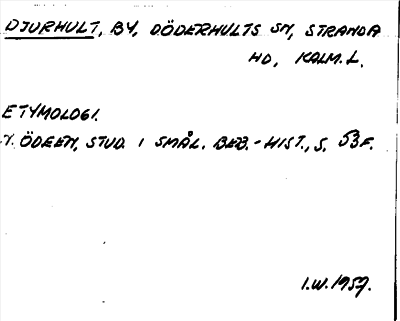 DJURHULT, BY, DÖDERHULTS SN, STRANDA
HD, KALM. L.
ETYMOLOGI.
N. ÖDEEN, STUD. I SMÅL. BEB.-HIST., S. 53F.
I.W. 1957.